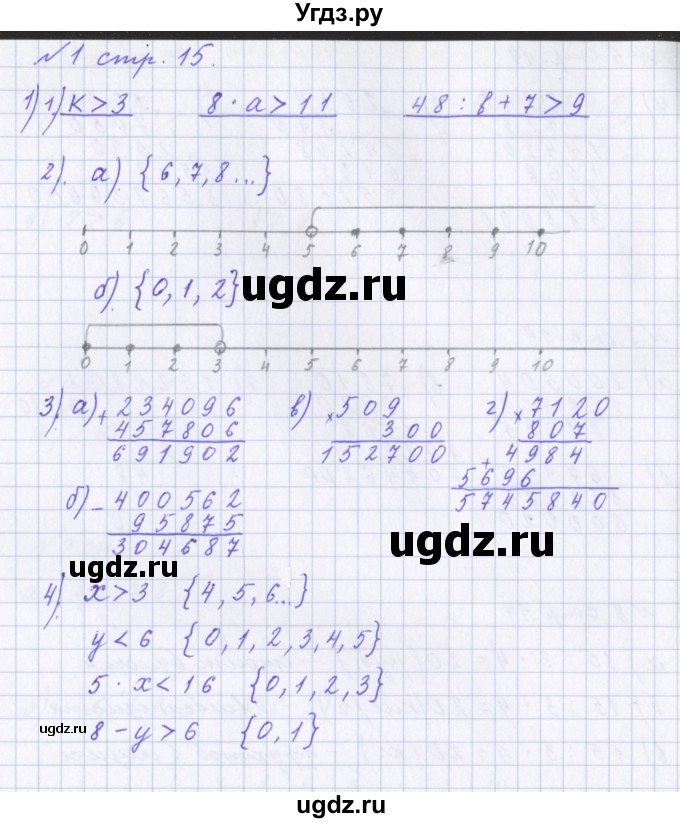 Угдз.ру
№1 стр. 15.
1) 1) К > 3 8 · а > 11 48 : в + 7 > 9
2). а). {6, 7, 8...}
0 1 2 3 4 5 6 7 8 9 10
б). {0, 1, 2}
ugdz.ru
0 1 2 3 4 5 6 7 8 9 10
3). а) + 234096 в) × 509 г) × 7120
457806 300 807
691902 152700 + 4984
5696
5745840
б) - 400562
95875
304687
ugdz.ru
ugdz.ru
4). x > 3 {4, 5, 6...}
y < 6 {0, 1, 2, 3, 4, 5}
5 · x < 16 {0, 1, 2, 3}
ugdz.ru
8 - y > 6 {0, 1}
ugdz.ru